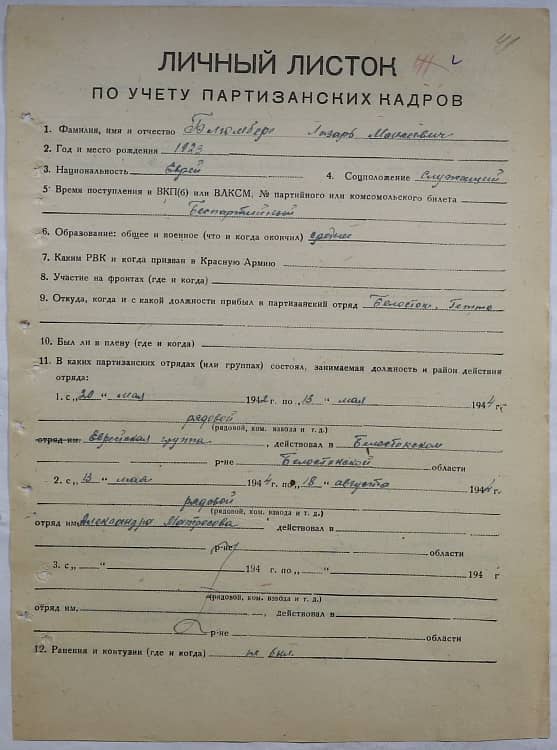 41
ЛИЧНЫЙ ЛИСТОК
ПО УЧЕТУ ПАРТИЗАНСКИХ КАДРОВ
1. Фамилия, имя и отчество Блюмберг Лазарь Моисеевич
2. Год и место рождения 1923
3. Национальность Еврей 4. Соцположение Служащий
5. Время поступления и ВКП(б) или ВЛКСМ, № партийного или комсомольского билета
Беспартийный
6. Образование: общее и военное (что и когда окончил) среднее
7. Каким РВК и когда призван в Красную Армию
8. Участие на фронтах (где и когда)
9. Откуда, когда и с какой должности прибыл в партизанский отряд Белосток, Гетто
10. Был ли в плену (где и когда)
11. В каких партизанских отрядах (или группах) состоял, занимаемая должность и район действия
отряда:
1. с „20" мая 1942 г. по „13" мая 1944 г.
рядовой
(рядовой, ком. взвода и т. д.)
отряд им. Еврейская группа, действовал в Белостокском
р-не Белостокской области
2. с „13" мая 1944 г. по „18" августа 1944 г.
рядовой
(рядовой, ком. взвода и т. д.)
отряд им. Александра Матросова действовал в
р-не области
3. с „ " 194 г. по „ " 194 г
(рядовой, ком. взвода и т. д.)
отряд им. , действовал в
р-не области
12. Ранения и контузии (где и когда) не был.